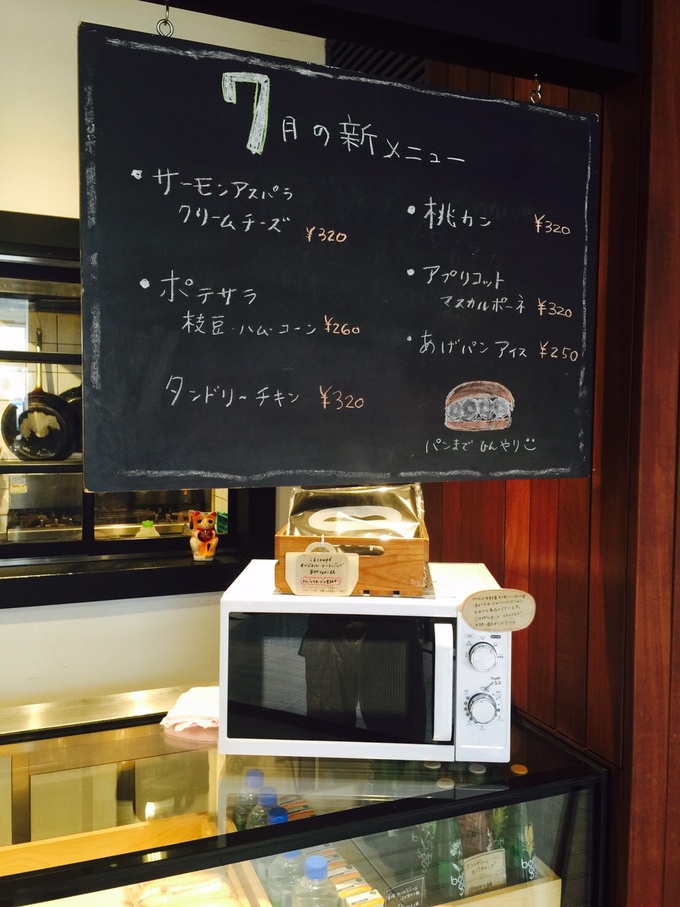 7月の新メニュー
・サーモンアスパラ
クリームチーズ ¥320
・ポテサラ
枝豆・ハム・コーン ¥260
タンドリーチキン ¥320
・桃カン ¥320
・アプリコット
マスカルポーネ ¥320
・あげパンアイス ¥250
パンまでひんやり